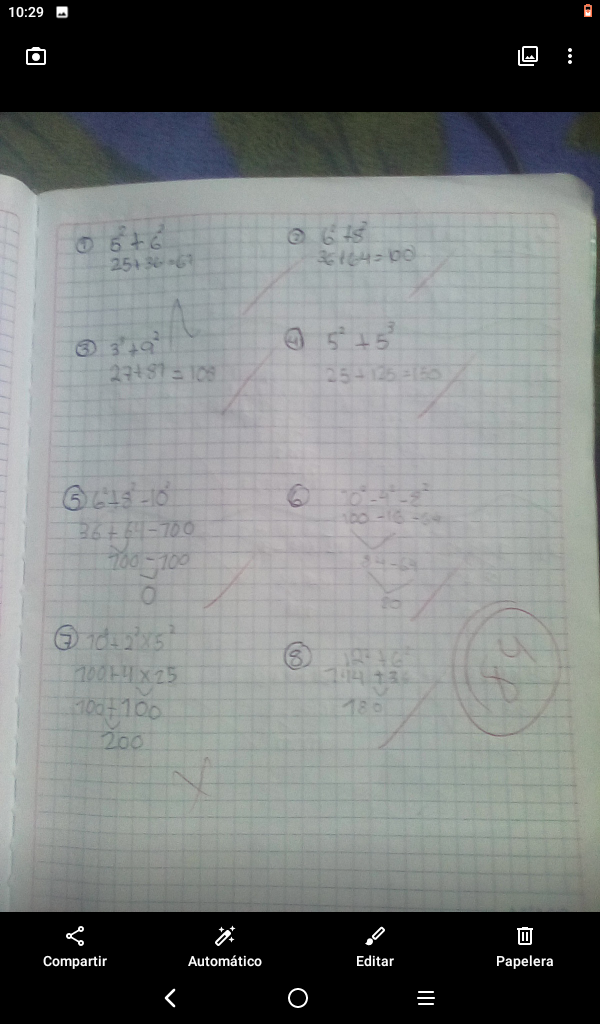 10:29
① 5² + 6²
25+36=61
② 6² + 8²
36+64=100
③ 3³+9²
27+81=108
④ 5² + 5³
25+125=150
⑤ 6²+8²-10²
36+64-100
100-100
0
⑥ 10²-4²-8²
100-16-64
84-64
20
⑦ 10²+2²×5²
100+4×25
100+100
200
⑧ 12²+6²
144+36
180
Compartir
Automático
Editar
Papelera